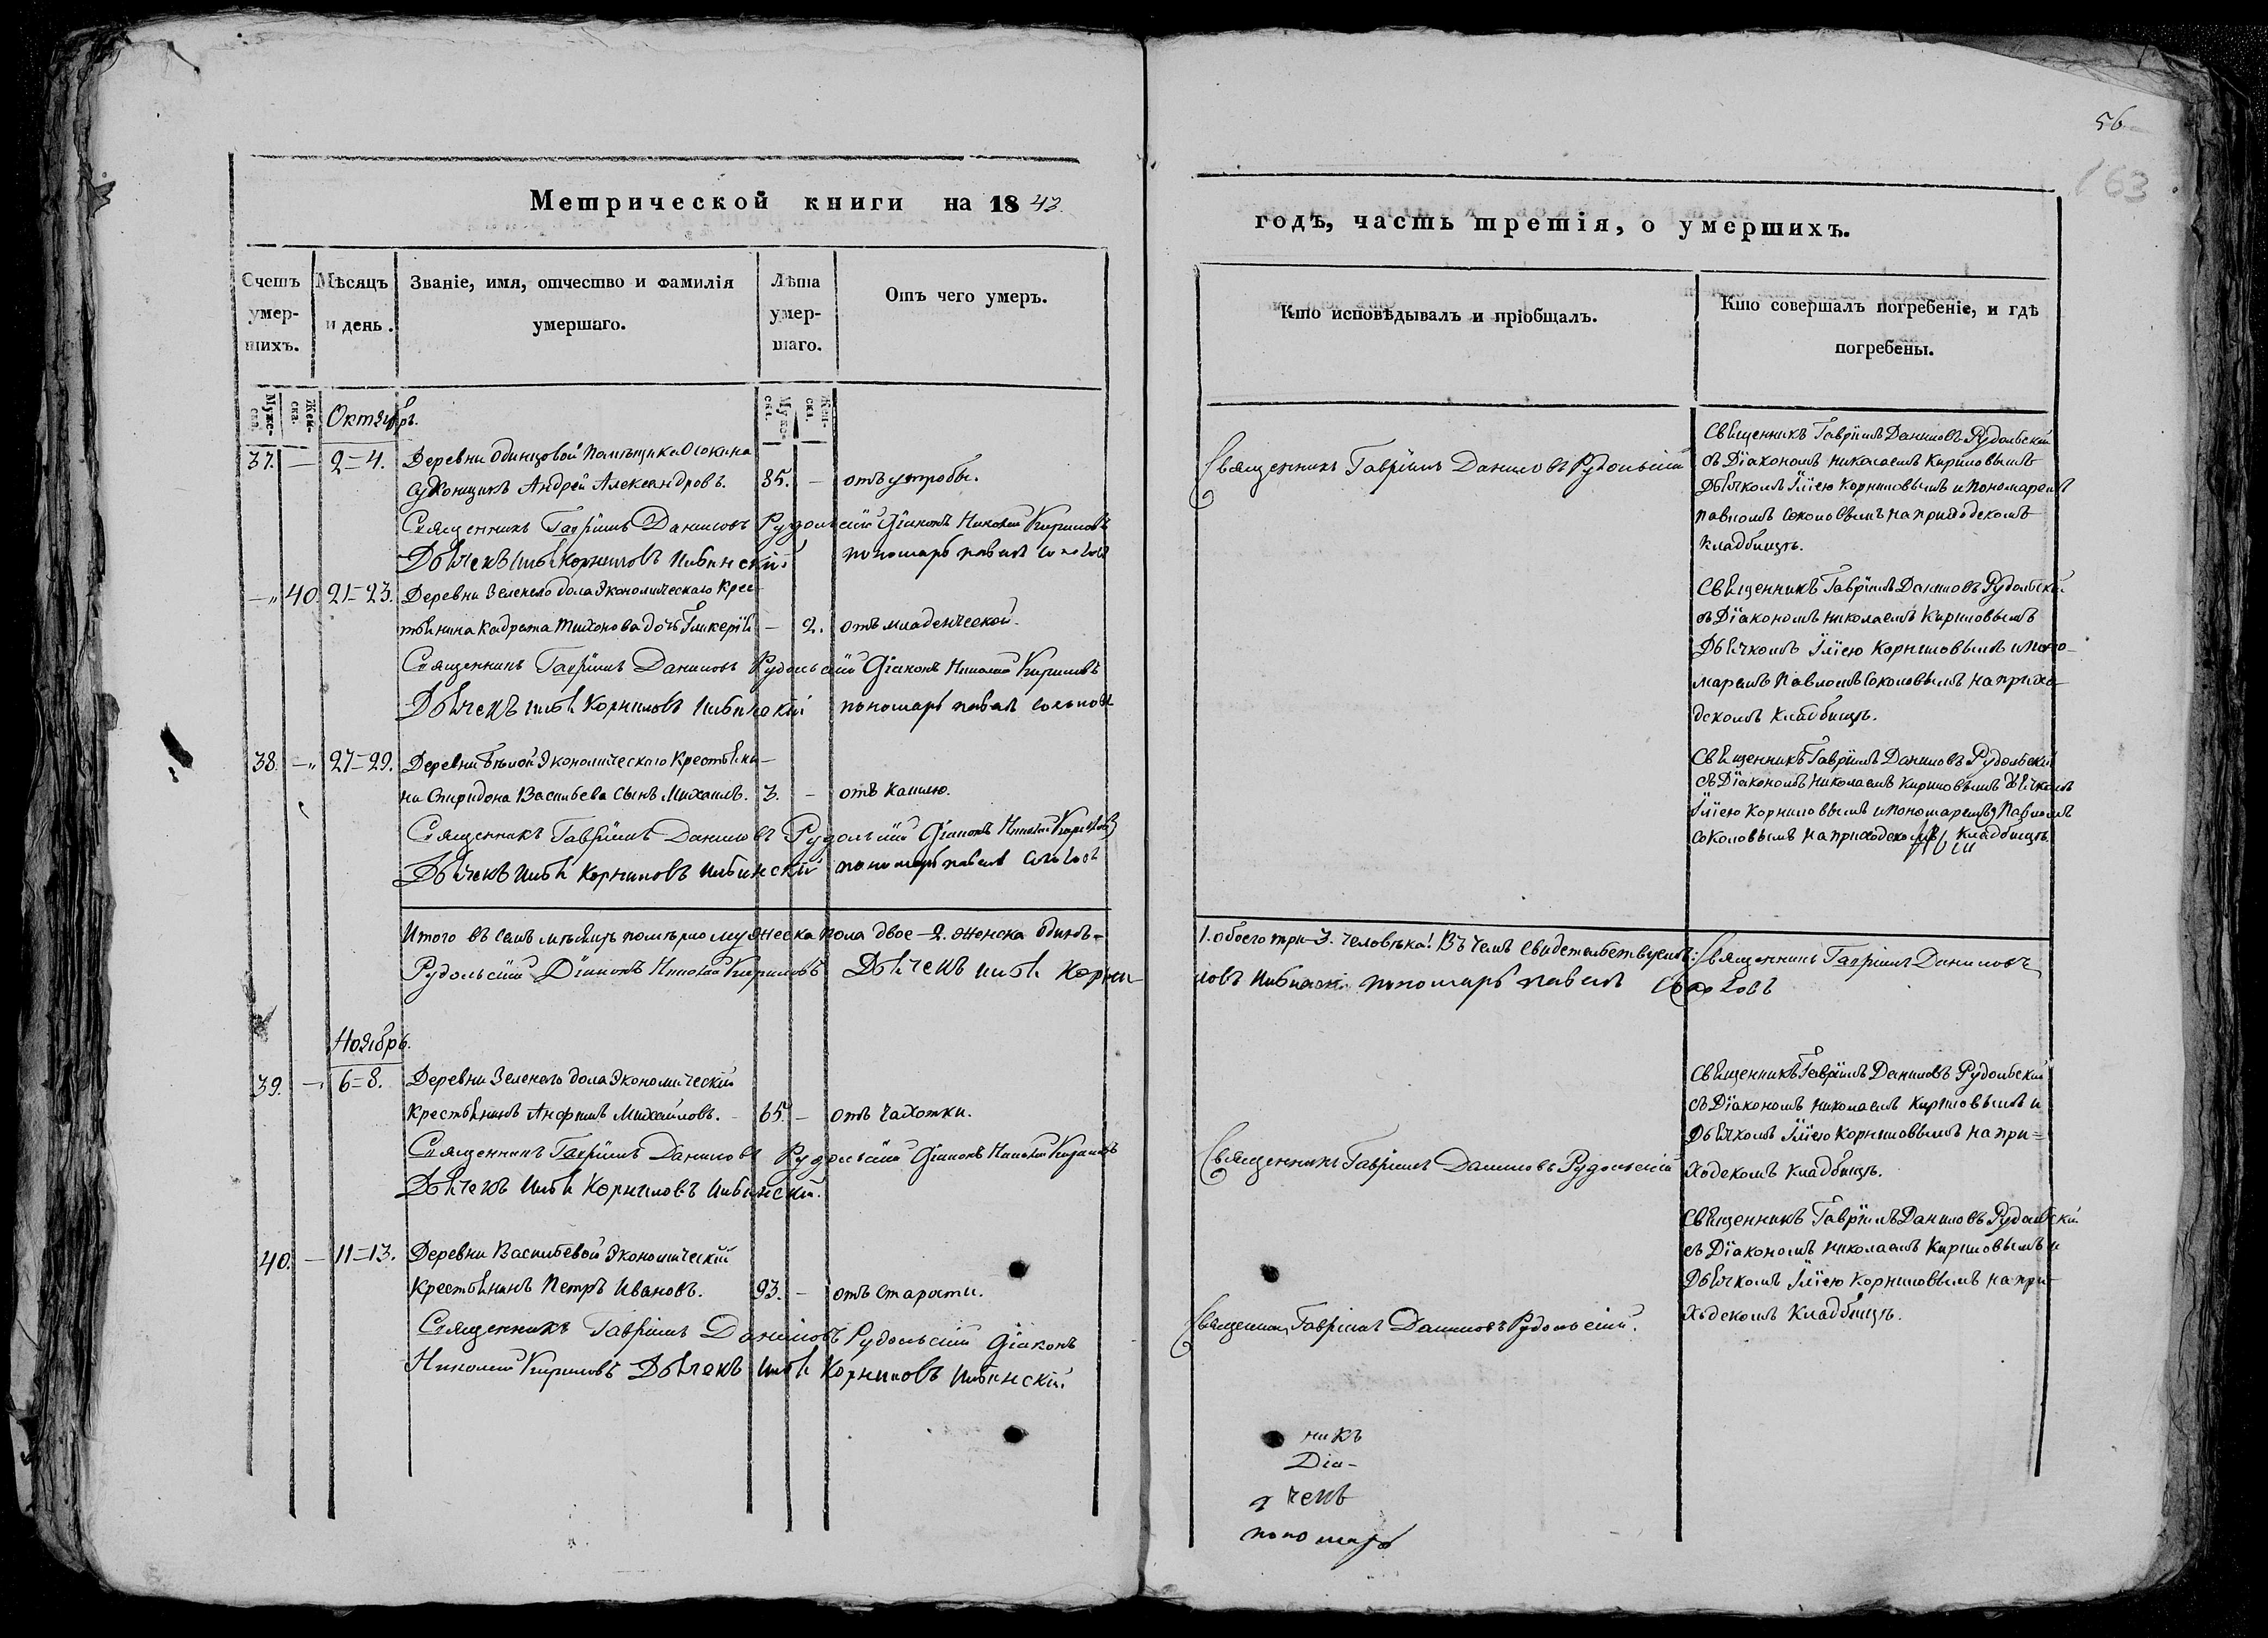 56
163
Метрической книги на 1843.
годъ, часть третія, о умершихъ.
Счетъ умер-шихъ.
Мѣсяцъ и день.
Званіе, имя, отчество и фамилія умершаго.
Лѣта умер-шаго.
Отъ чего умеръ.
Кто исповѣдывалъ и пріобщалъ.
Кто совершалъ погребеніе, и гдѣ погребены.
Мужс-ска.
Жен-ска.
Мужс-ска.
Жен-ска.
Октябрь.
37. — 2=4. Деревни Одинцовой Помѣщика Осокина
Суконщикъ Андрей Александровъ. 35. — отъ утробы.
Священникъ Гавріилъ Даниловъ Рудольскій Діаконъ Николай Кириловъ
Дьячекъ Илья Корниловъ пономарь Павелъ Соколовъ
Священникъ Гавріилъ Даниловъ Рудольскій
Священникъ Гавріилъ Даниловъ Рудольскій
съ Діакономъ Николаемъ Кириловымъ
Дьячкомъ Иліею Корниловымъ и Пономаремъ
Павломъ Соколовымъ на приходскомъ
кладбищѣ.
—„ 40. 21=23. Деревни Зеленаго дола Экономическаго Крес-
тьянина Кадрата Тихонова дочь Гликерія — 2. отъ младенческой.
Священникъ Гавріилъ Даниловъ Рудольскій Діаконъ Николай Кириловъ
Дьячекъ Илья Корниловъ пономарь Павелъ Соколовъ
Священникъ Гавріилъ Даниловъ Рудольскій
съ Діакономъ Николаемъ Кириловымъ
Дьячкомъ Иліею Корниловымъ и Поно-
маремъ Павломъ Соколовымъ на прихо-
дскомъ кладбищѣ.
38. —„ 27=29. Деревни Бѣлой Экономическаго Крестьяни-
на Спиридона Васильева сынъ Михаилъ. 3. — отъ кашлю.
Священникъ Гавріилъ Даниловъ Рудольскій Діаконъ Николай Кириловъ
Дьячекъ Илья Корниловъ пономарь Павелъ Соколовъ
Священникъ Гавріилъ Даниловъ Рудольскій
съ Діакономъ Николаемъ Кириловымъ Дьячкомъ
Иліею Корниловымъ и Пономаремъ Павломъ
Соколовымъ на приходскомъ кладбищѣ.
Итого въ семъ мѣсяцѣ померло мужеска пола двое—2. женска одинъ—
1. обоего три—3. человѣка! Въ чемъ свидетельствуемъ: Священникъ Гавріилъ Даниловъ
Рудольскій Діаконъ Николай Кириловъ Дьячекъ Илья Корни-
ловъ пономарь Павелъ Соколовъ
Ноябрь.
39. — 6=8. Деревни Зеленаго дола Экономическій
крестьянинъ Анфимъ Михайловъ. 65. — отъ чахотки.
Священникъ Гавріилъ Даниловъ Рудольскій Діаконъ Николай Кириловъ
Дьячекъ Илья Корниловъ
Священникъ Гавріилъ Даниловъ Рудольскій
Священникъ Гавріилъ Даниловъ Рудольскій
съ Діакономъ Николаемъ Кириловымъ и
Дьячкомъ Иліею Корниловымъ на при=
ходскомъ кладбищѣ.
40. — 11=13. Деревни Васильевой Экономическій
крестьянинъ Петръ Ивановъ. 93. — отъ старости.
Священникъ Гавріилъ Даниловъ Рудольскій Діаконъ
Николай Кириловъ Дьячекъ Илья Корниловъ
Священникъ Гавріилъ Даниловъ Рудольскій.
Священникъ Гавріилъ Даниловъ Рудольскій
съ Діакономъ Николаемъ Кириловымъ и
Дьячкомъ Иліею Корниловымъ на при-
ходскомъ кладбищѣ.
никъ
Діа-
чекъ
пономарь